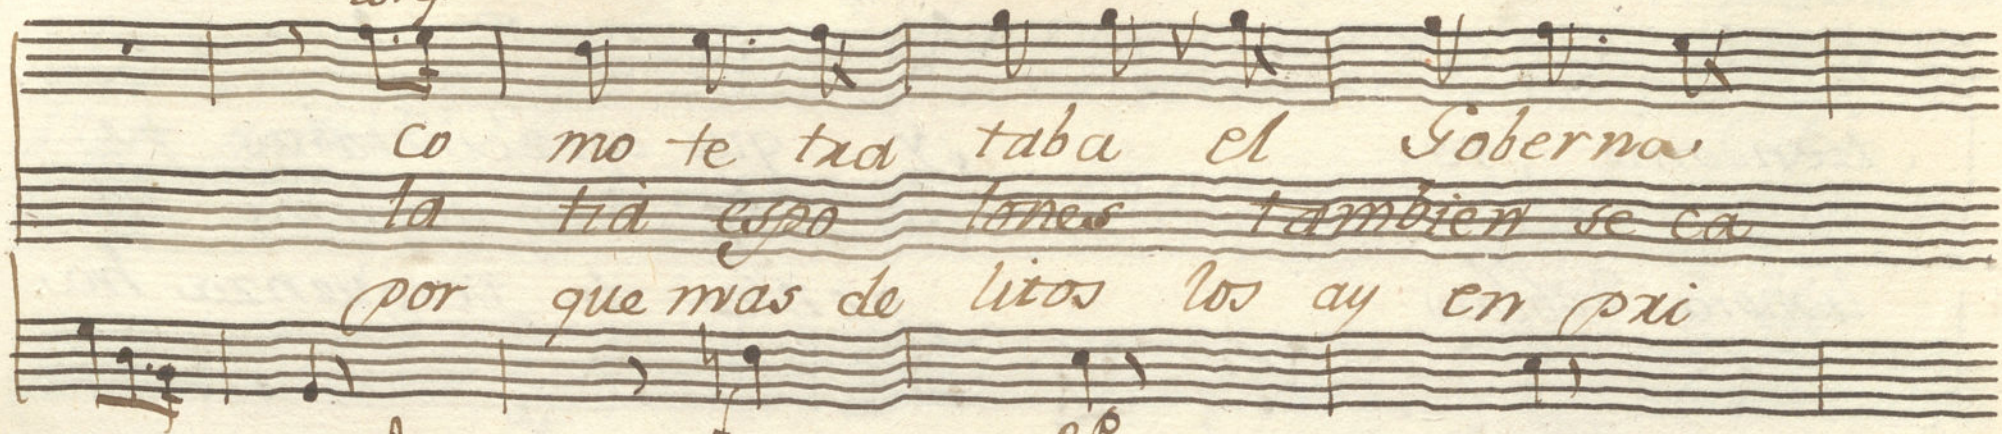 co mo te tra taba el Goberna
la tia espo lones tambien se ca
por que mas de litos los ay en pri